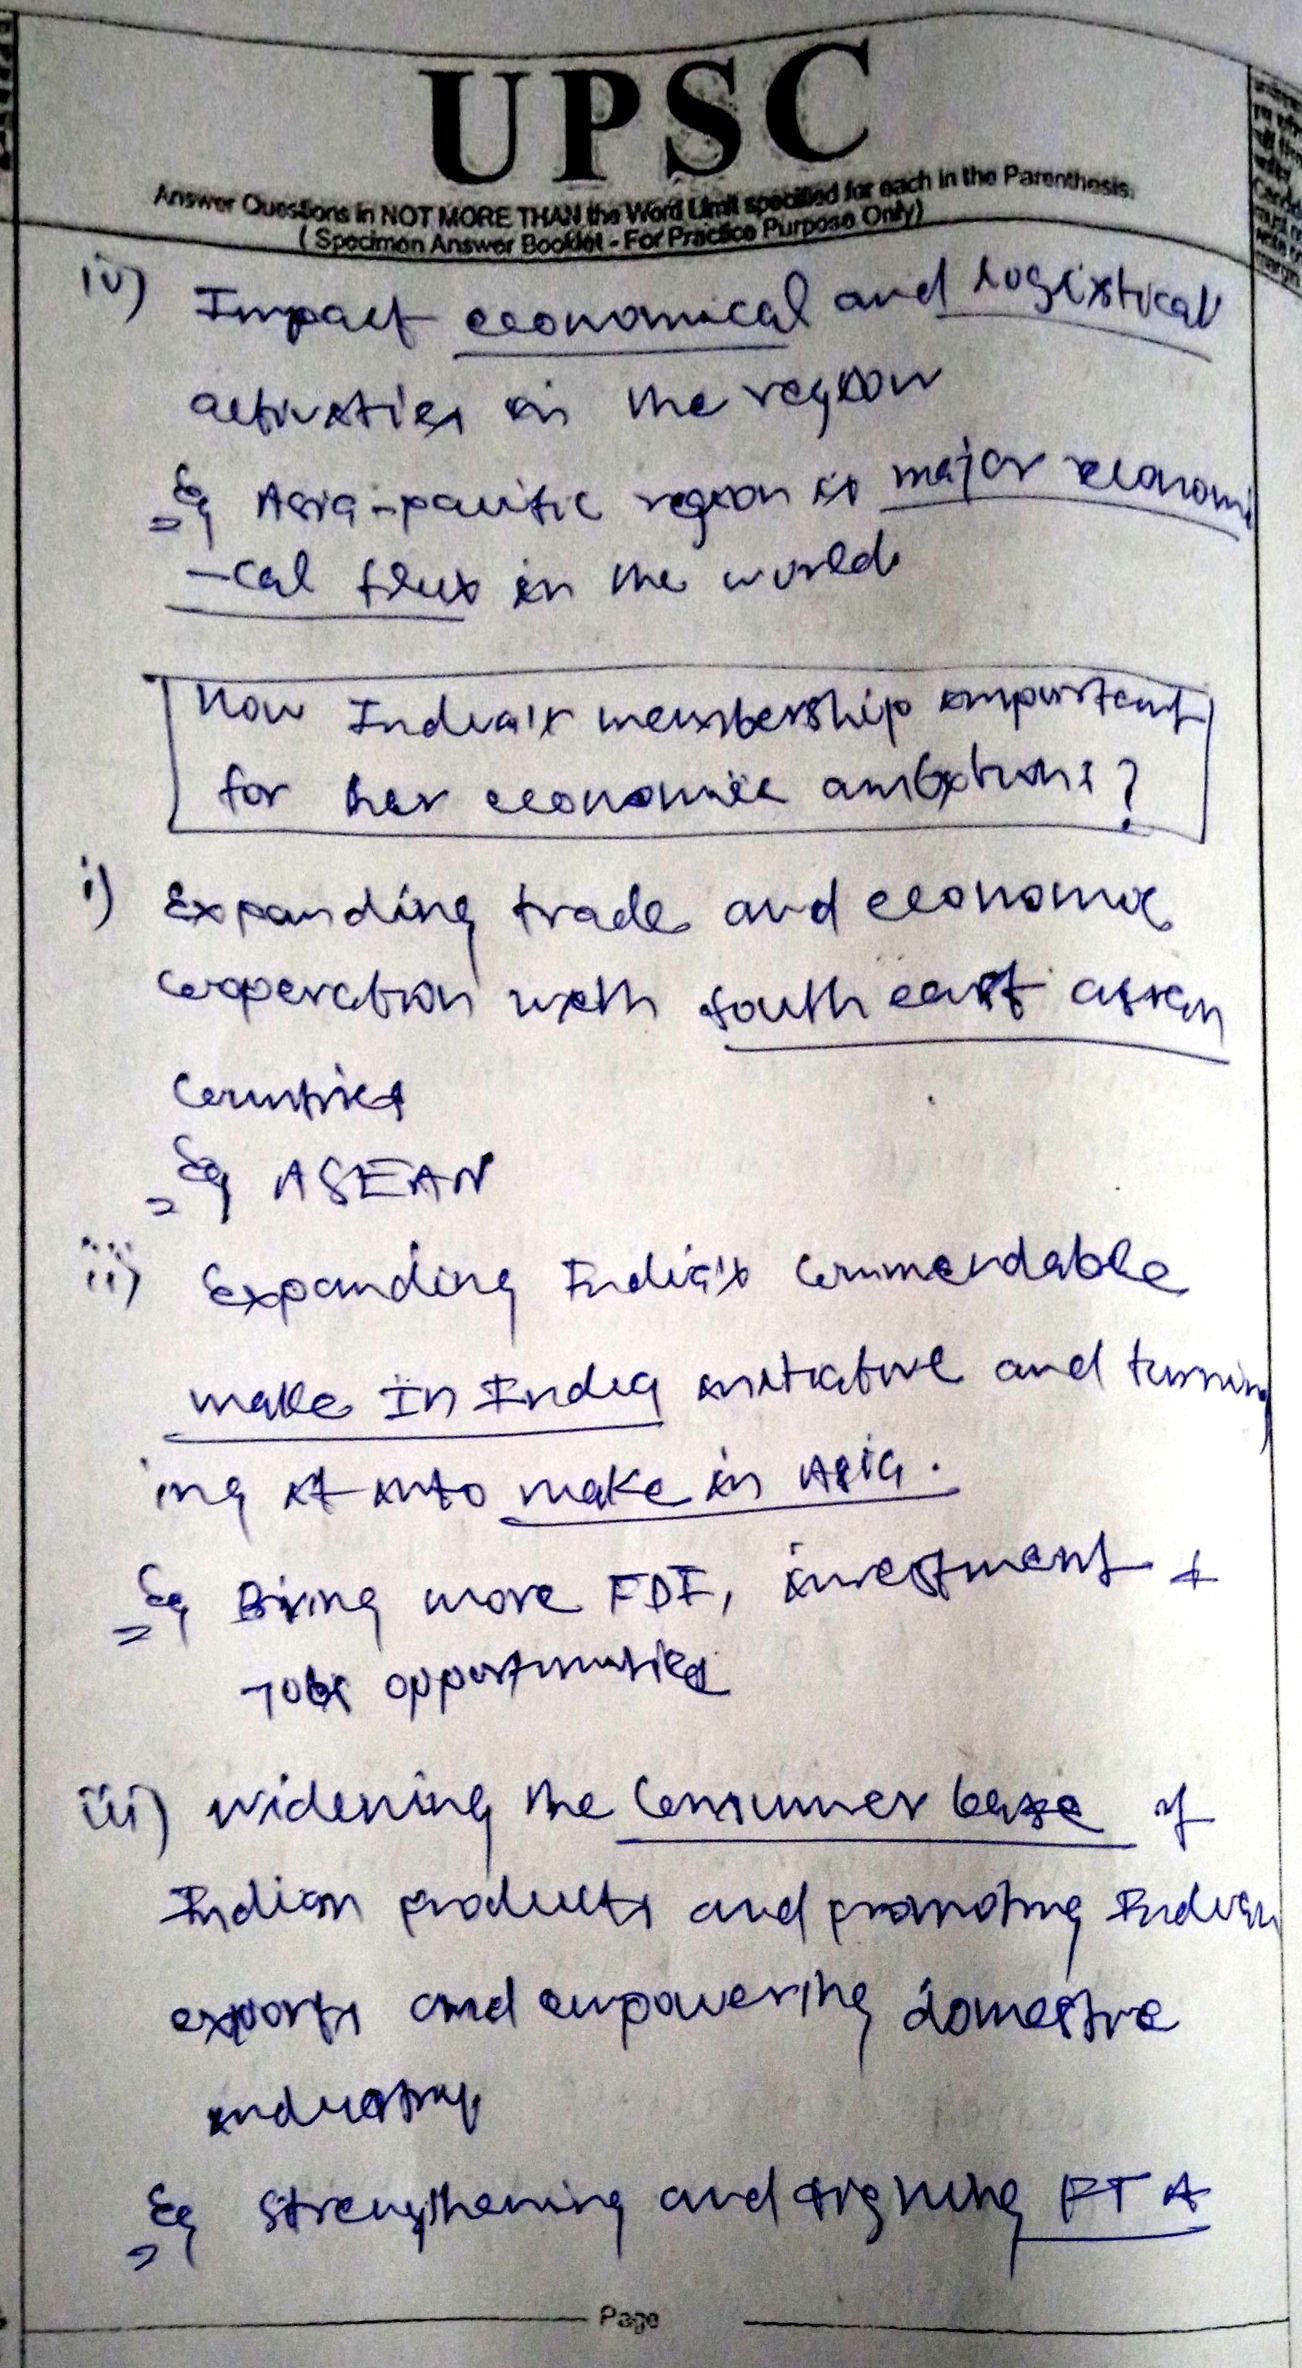 UPSC
Answer Questions in NOT MORE THAN the Word Limit specified for each in the Parenthesis.
( Specimen Answer Booklet - For Practice Purpose Only)
iv) Impact economical and logistical
activities in the region
Eg Asia-pacific region is major economi
-cal flux in the world
How India's membership important
for her economic ambitions?
i) Expanding trade and economic
cooperation with south east asian
countries
Eg ASEAN
ii) Expanding India's commendable
make in India initiative and turning
ing it into make in Asia.
Eg Bring more FDI, investment +
Jobs opportunities
iii) widening the consumer base of
Indian products and promoting Indian
exports and empowering domestic
industry
Eg strengthening and signing FTA
Page